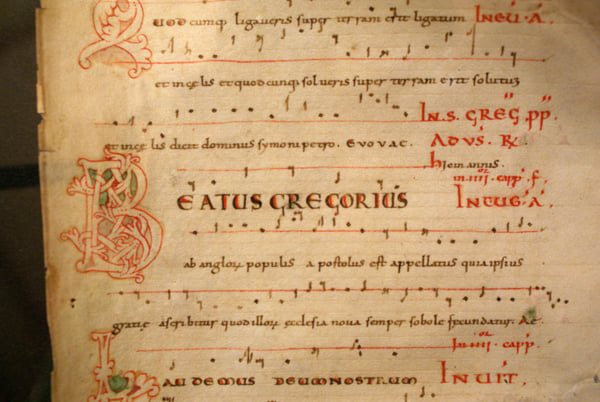 Quodcumq; ligaveris super terram erit ligatum IN EU. A.
et in celis et quodcumq; solueris super terram erit solutum
IN. S. GREG. PP.
et in celis dicit dominus symoni petro. EVOVAE. AD VS. R.
hioin annis.
in. iiii. capp. f.
BEATUS GREGORIUS IN EUG. A.
ab anglorum populis apostolus est appellatus quia ipsius
gratie ascribitur quod illorum ecclesia nova semper sobole fecundatur. AE.
in. iiii. capp.
LAUDEMUS DEUM NOSTRUM INUIT.